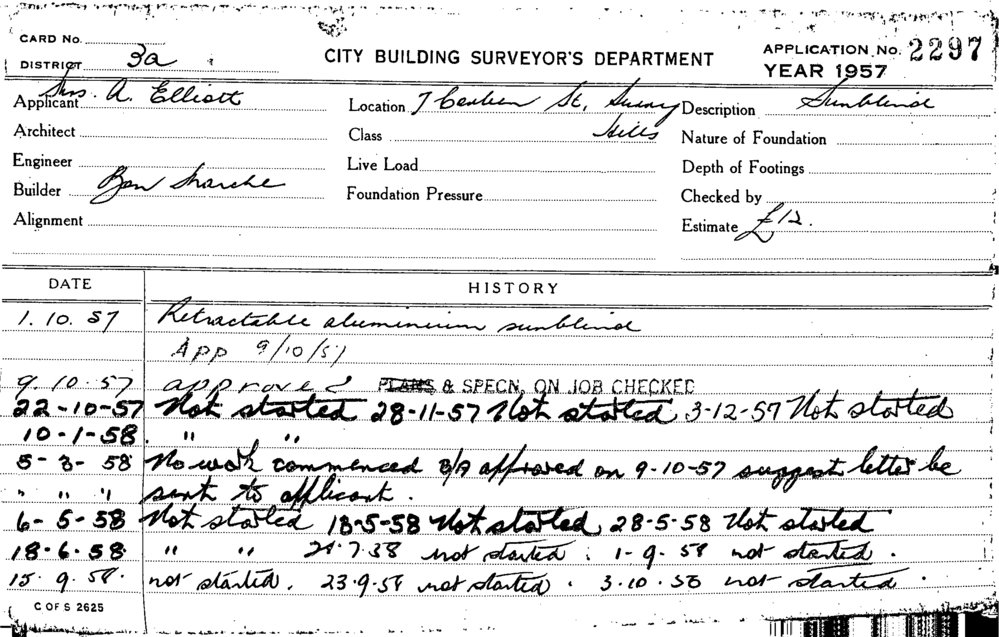 CARD No.
DISTRICT 3a
CITY BUILDING SURVEYOR'S DEPARTMENT
APPLICATION No. 2297
YEAR 1957
Applicant Mrs. A. Elliott
Location 7 St, Surry Hills
Description Sunblind
Architect
Class
Nature of Foundation
Engineer
Live Load
Depth of Footings
Builder
Foundation Pressure
Checked by
Alignment
Estimate £12.
DATE HISTORY
1. 10. 57 Retractable aluminium sunblind
App 9/10/57
9. 10. 57 approved PLANS & SPECN. ON JOB CHECKED
22-10-57 Not started 28-11-57 Not started 3-12-57 Not started
10-1-58. " "
5-3-58 No work commenced B/A approved on 9-10-57 suggest letter be
" " " sent to applicant.
6-5-58 Not started 18-5-58 Not started 28-5-58 Not started
18.6.58. " " 21.7.58 not started. 1-9.58 not started.
15.9.58. not started. 23.9.58 not started. 3.10.58 not started.
C OF S 2625